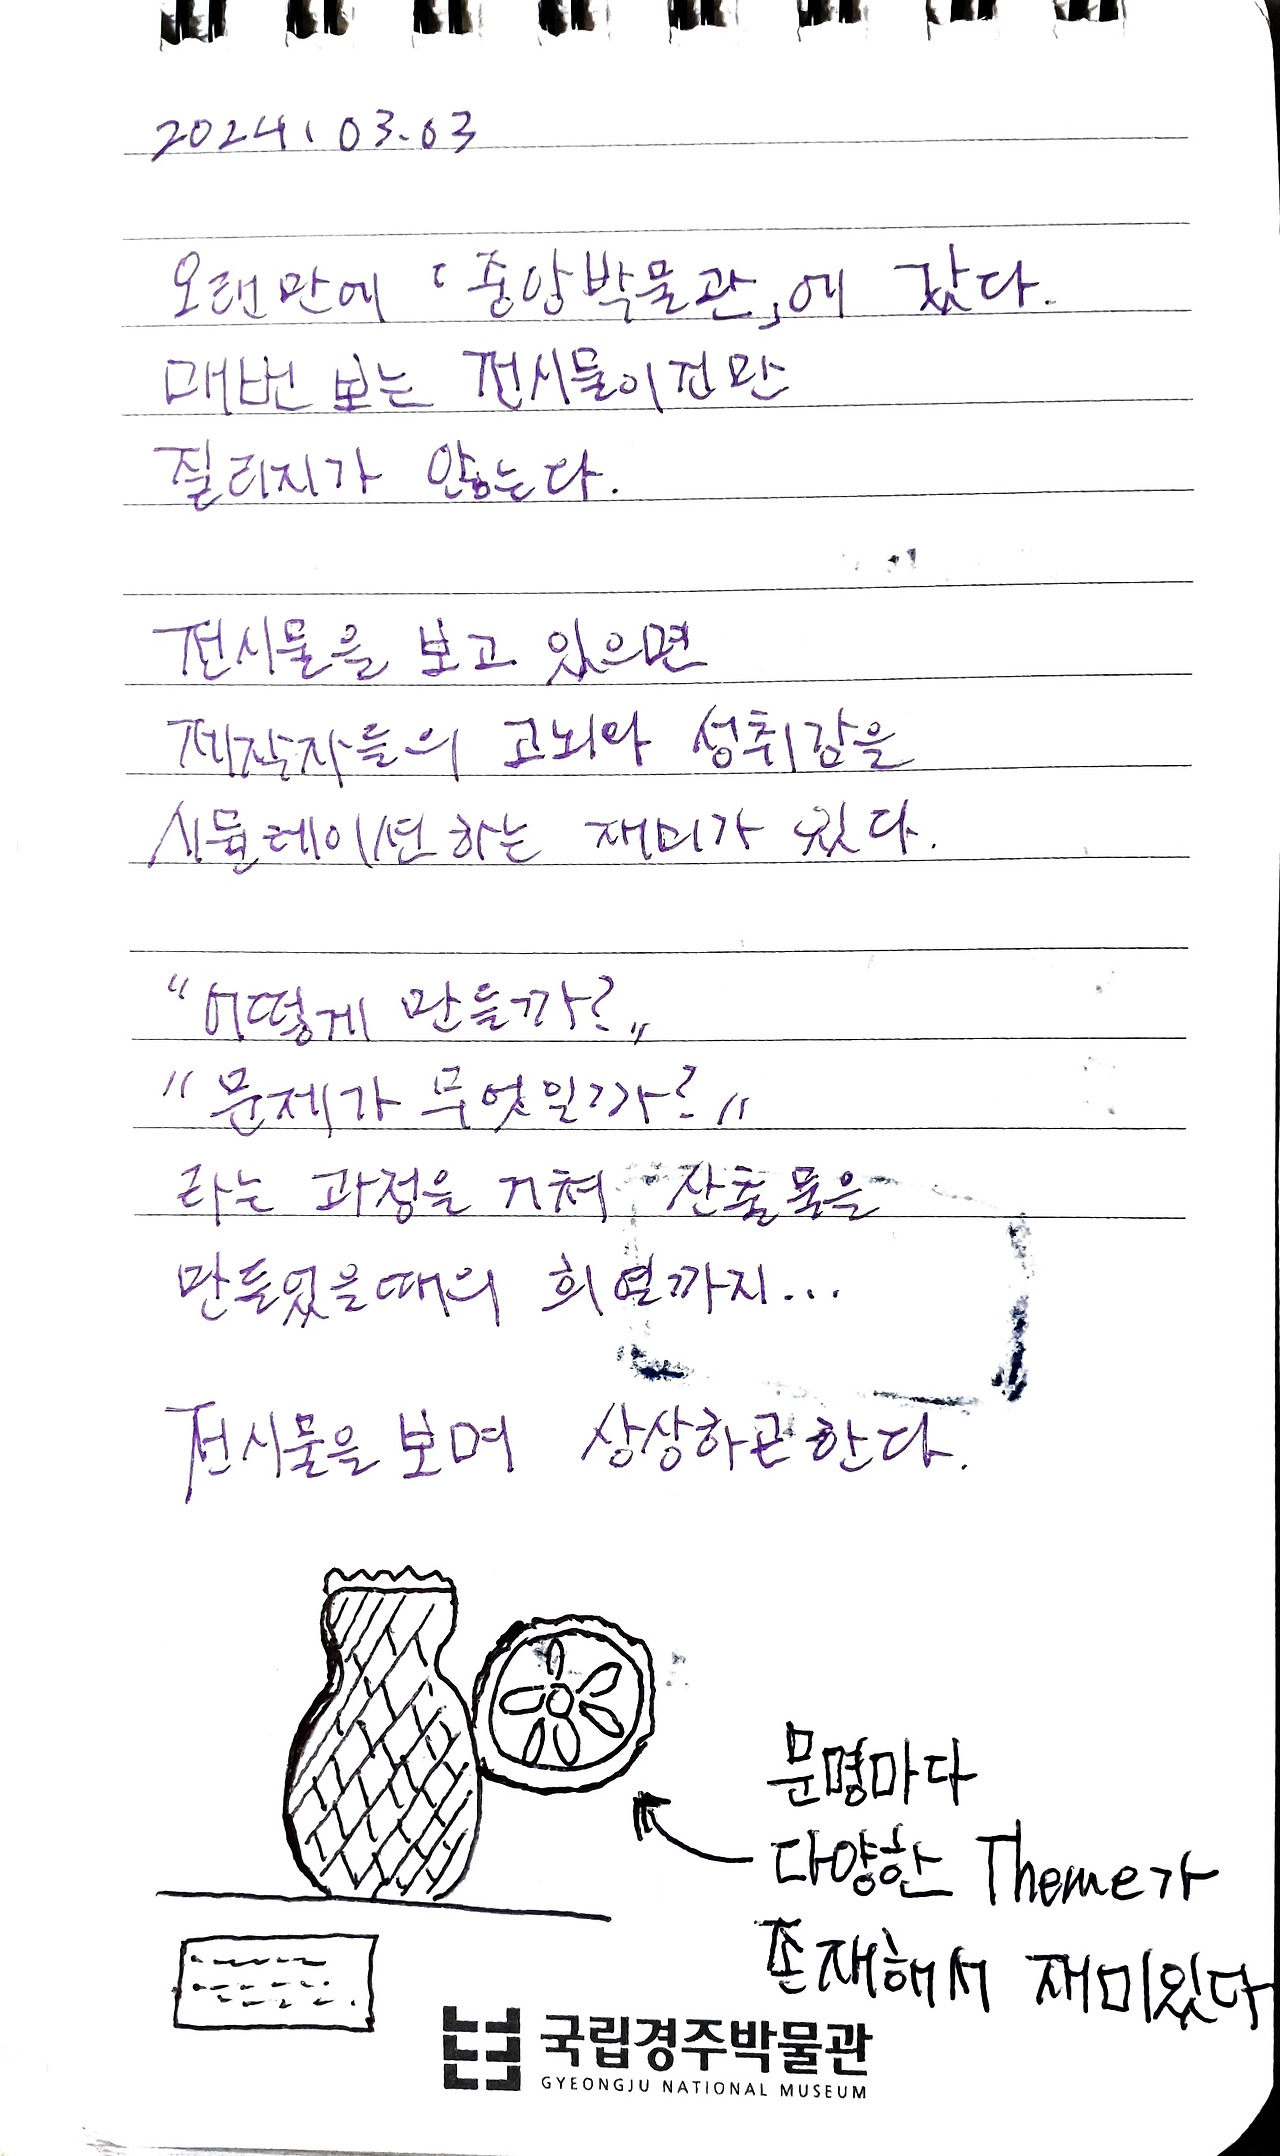 2024. 03.03
오랜만에 「중앙박물관」에 갔다.
매번 보는 전시물이건만
질리지가 않는다.
전시물을 보고 있으면
제작자들의 고뇌와 성취감을
시뮬레이션하는 재미가 있다.
"어떻게 만들까?"
"문제가 무엇일까?"
라는 과정을 거쳐 산출물을
만들었을때의 희열까지...
전시물을 보며 상상하곤한다.
문명마다
다양한 Theme가
존재해서 재미있다
국립경주박물관
GYEONGJU NATIONAL MUSEUM